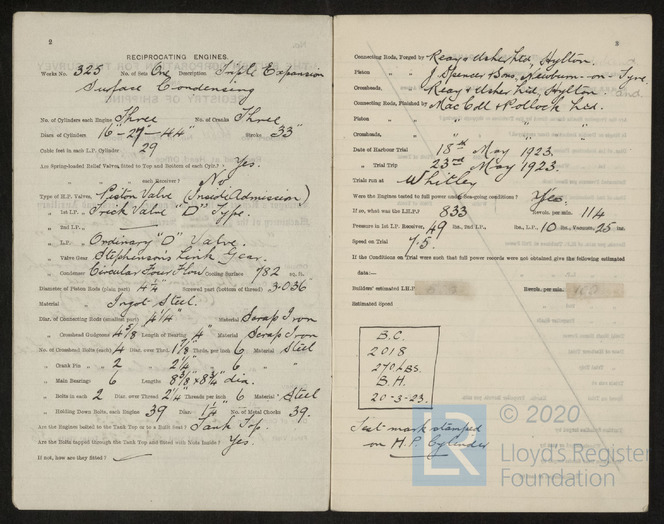 2
RECIPROCATING ENGINES.
Works No. 325 No. of Sets One Description Triple Expansion
Surface Condensing
No. of Cylinders each Engine Three No. of Cranks Three
Diars. of Cylinders 16 - 27 - 44" Stroke 33"
Cubic feet in each L.P. Cylinder 29
Are Spring-loaded Relief Valves fitted to Top and Bottom of each Cylr.? Yes.
" " each Receiver? No
Type of H.P. Valves, Piston Valve (Inside Admission)
" 1st L.P. " Trick Valve "D" Type.
" 2nd L.P. "
" L.P. " Ordinary "D" Valve.
" Valve Gear Stephensons Link Gear.
" Condenser Circular Four Flow Cooling Surface 782 sq. ft.
Diameter of Piston Rods (plain part) 4¼" Screwed part (bottom of thread) 3.036"
Material Ingot Steel.
Diar. of Connecting Rods (smallest part) 4¼" Material Scrap Iron
" Crosshead Gudgeons 4⅝ Length of Bearing 4" Material Scrap Iron
No. of Crosshead Bolts (each) 4 Diar. over Thrd. 1⅞" Thrds. per inch 6 Material Steel
" Crank Pin " " 2 " 2¼" " 6 "
" Main Bearings 6 Lengths 8⅜" x 8¾" dia.
" Bolts in each 2 Diar. over Thread 2¼" Threads per inch 6 Material Steel
" Holding Down Bolts, each Engine 39 Diar. 1¼" No. of Metal Chocks 39.
Are the Engines bolted to the Tank Top or to a Built Seat? Tank Top.
Are the Bolts tapped through the Tank Top and fitted with Nuts Inside? Yes.
If not, how are they fitted?
3
Connecting Rods, Forged by Reay & Usher Ltd, Hylton.
Piston " " J. Spencer & Sons, Newburn-on-Tyne
Crossheads, " " Reay & Usher Ltd, Hylton.
Connecting Rods, Finished by MacColl & Pollock Ltd.
Piston " " "
Crossheads, " " "
Date of Harbour Trial 18th May 1923.
" Trial Trip 23rd May 1923.
Trials run at Whitley
Were the Engines tested to full power under Sea-going conditions? Yes.
If so, what was the I.H.P.? 833 Revols. per min. 114
Pressure in 1st I.P. Receiver, 49 lbs., 2nd I.P., lbs., L.P. 10 lbs., Vacuum 25 ins.
Speed on Trial 7.5.
If the Conditions on Trial were such that full power records were not obtained give the following estimated
data:—
Builders' estimated I.H.P. Revols. per min.
Estimated Speed
B.C.
2018
270 LBS.
B.H.
20-3-23.
Test mark stamped
on H.P. Cylinder
© 2020
LR
Lloyd's Register
Foundation